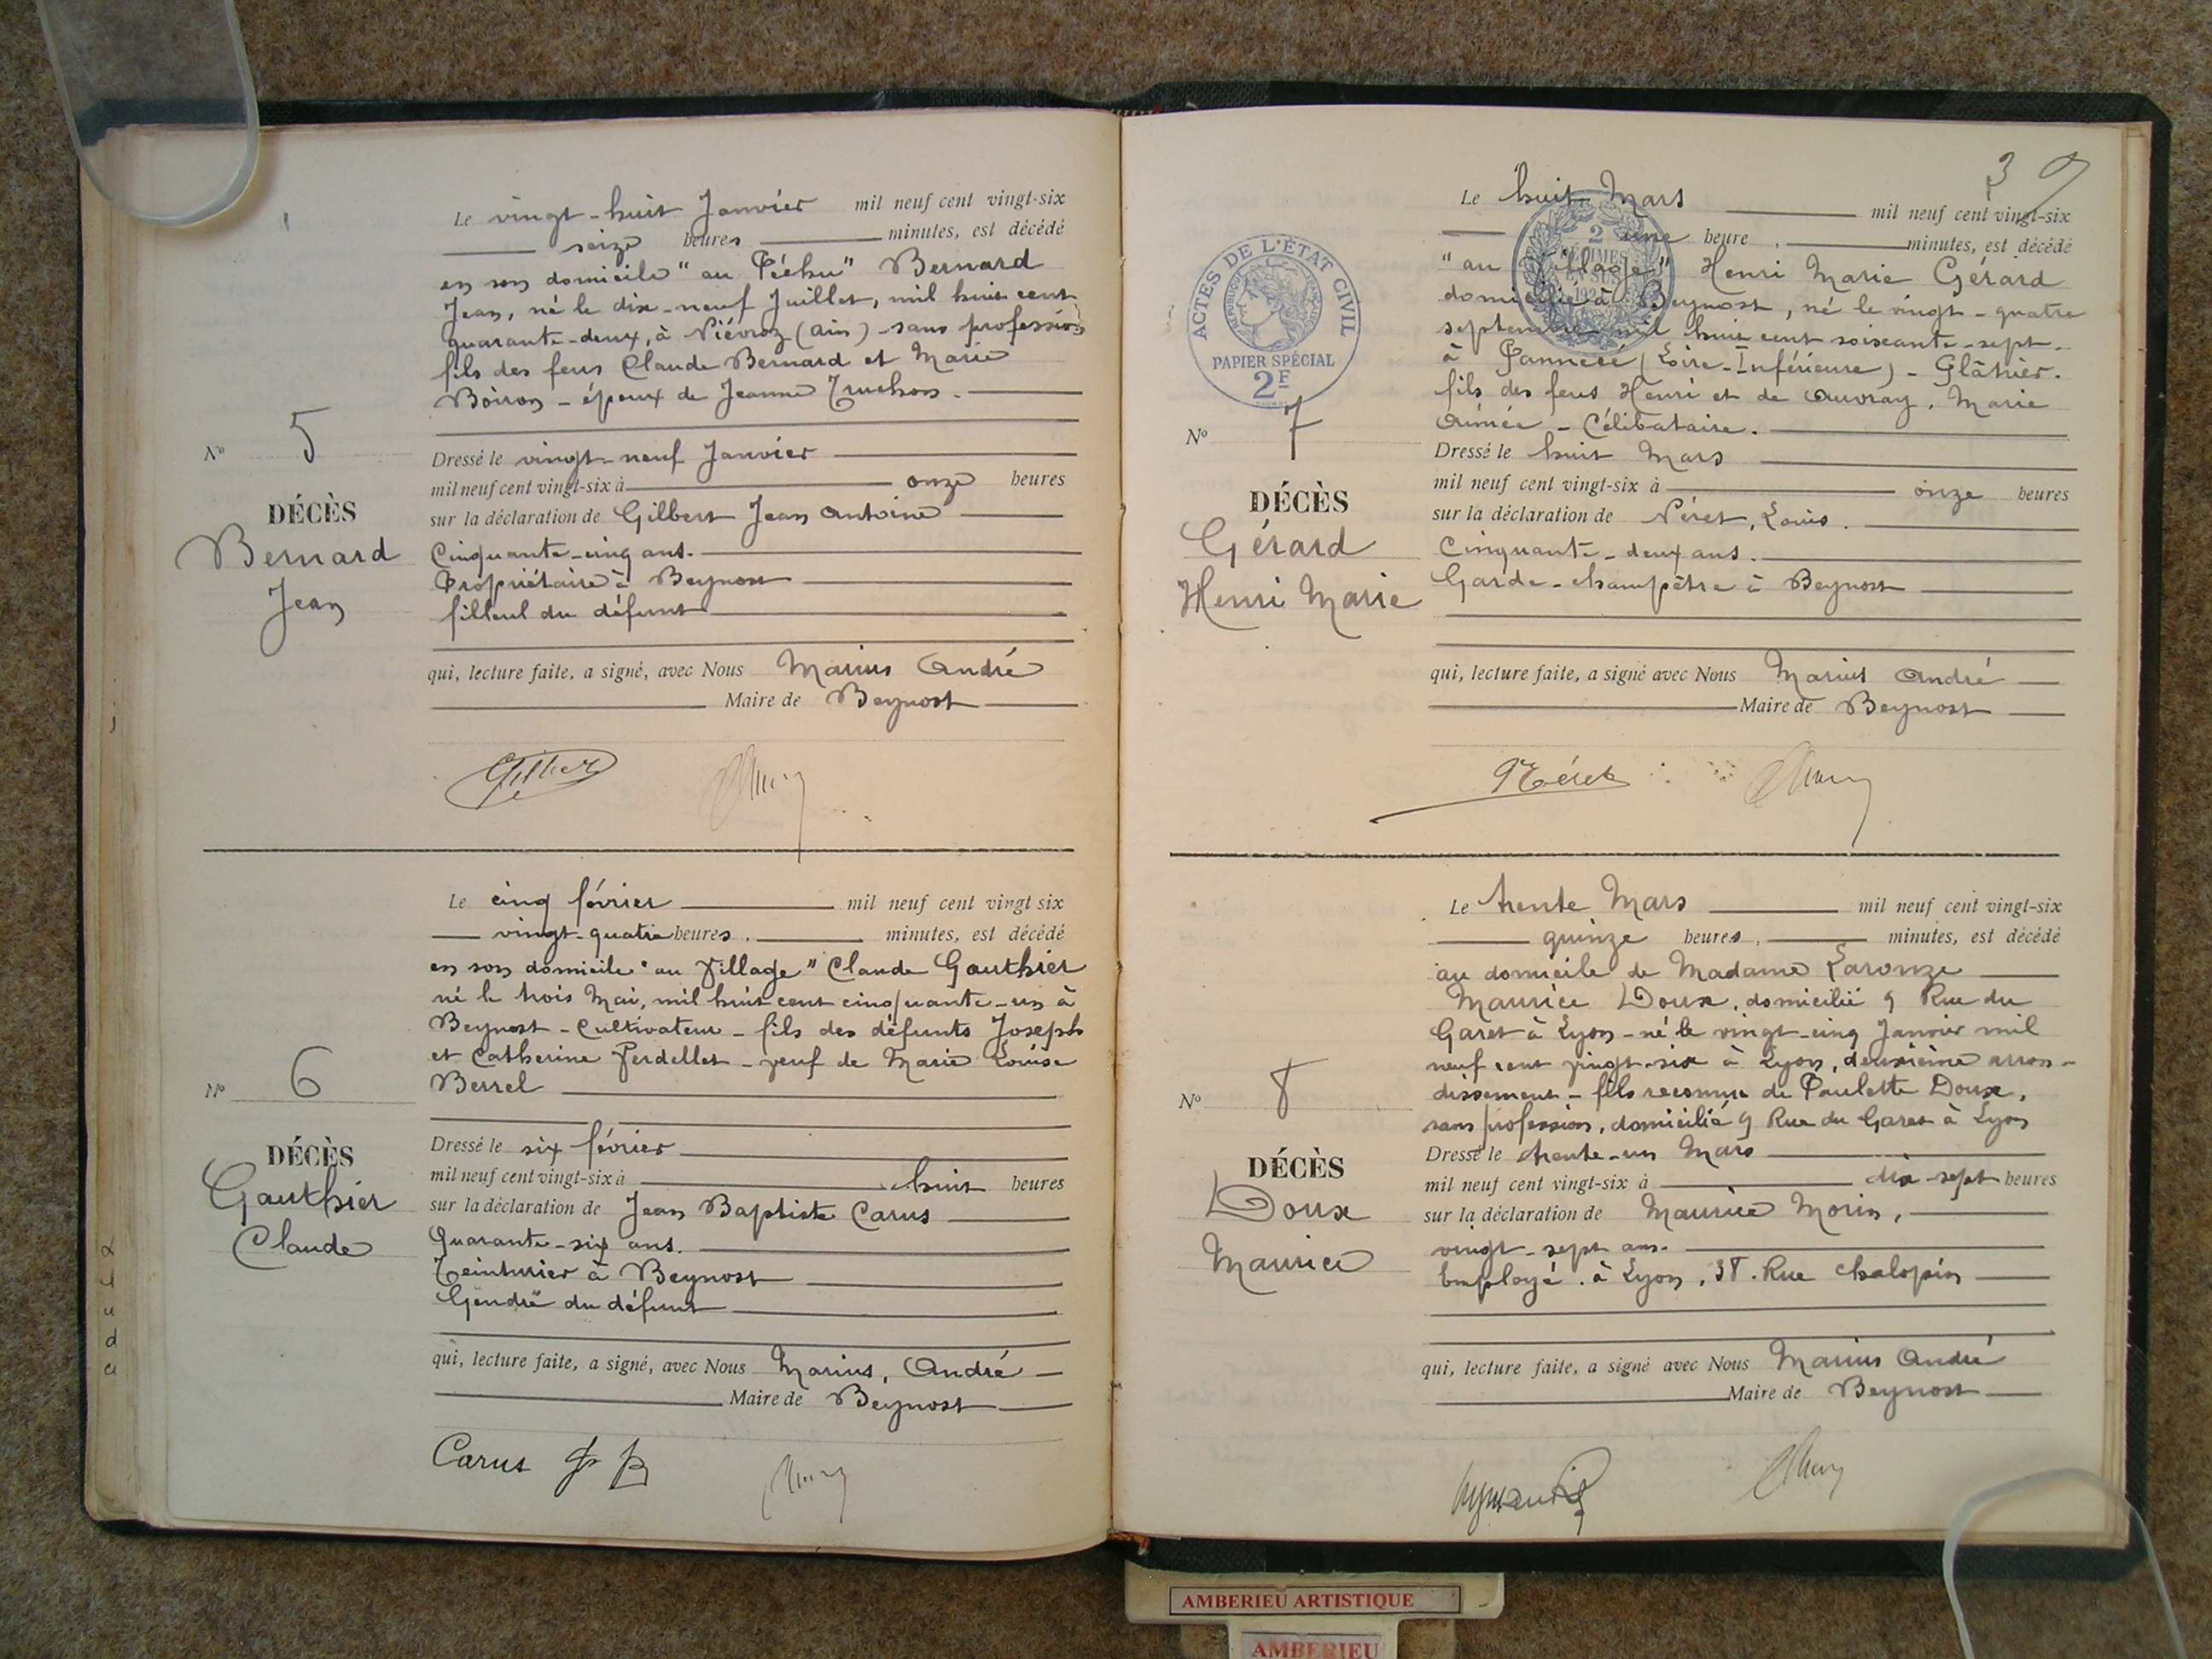 Le vingt-huit Janvier mil neuf cent vingt-six
seize heures minutes, est décédé
en son domicile "au Péchu" Bernard
Jean, né le dix-neuf Juillet, mil huit cent
quarante-deux, à Niévroz (Ain) - sans profession
fils des feus Claude Bernard et Marie
Boiron - époux de Jeanne Truchon.
N° 5
DÉCÈS
Bernard
Jean
Dressé le vingt-neuf Janvier
mil neuf cent vingt-six à onze heures
sur la déclaration de Gilbert Jean Antoine
Cinquante-cinq ans.
Propriétaire à Beynost
filleul du défunt
qui, lecture faite, a signé, avec Nous Marius André
Maire de Beynost
Le cinq février mil neuf cent vingt six
vingt-quatre heures, minutes, est décédé
en son domicile "au Village" Claude Gauthier
né le trois Mai, mil huit cent cinquante-un à
Beynost - Cultivateur - fils des défunts Joseph
et Catherine Perdellet - veuf de Marie Louise
Berrel
N° 6
DÉCÈS
Gauthier
Claude
Dressé le six février
mil neuf cent vingt-six à huit heures
sur la déclaration de Jean Baptiste Carus
Quarante-six ans.
Teinturier à Beynost
Gendre du défunt
qui, lecture faite, a signé, avec Nous Marius, André
Maire de Beynost
Carus
3
Le huit Mars mil neuf cent vingt-six
une heure, minutes, est décédé
"au Village" Henri Marie Gérard
domicilié à Beynost, né le vingt-quatre
septembre mil huit cent soixante-sept.
à Pannecé (Loire-Inférieure) - Plâtrier.
fils des feus Henri et de Auvray, Marie
Aimée - Célibataire.
ACTES DE L'ÉTAT CIVIL
PAPIER SPÉCIAL
2F
N° 7
DÉCÈS
Gérard
Henri Marie
Dressé le huit Mars
mil neuf cent vingt-six à onze heures
sur la déclaration de Néret, Louis.
Cinquante-deux ans.
Garde-champêtre à Beynost
qui, lecture faite, a signé avec Nous Marius André
Maire de Beynost
Néret
Le trente Mars mil neuf cent vingt-six
quinze heures, minutes, est décédé
au domicile de Madame Laronze
Maurice Doux, domicilié 9 Rue du
Garet à Lyon - né le vingt-cinq Janvier mil
neuf cent vingt-six à Lyon, deuxième arron-
dissement - fils reconnu de Paulette Doux,
sans profession, domicilié 9 Rue du Garet à Lyon
N° 8
DÉCÈS
Doux
Maurice
Dressé le trente-un Mars
mil neuf cent vingt-six à dix-sept heures
sur la déclaration de Maurice Morin,
vingt-sept ans.
Employé à Lyon, 38. Rue Chalopin
qui, lecture faite, a signé avec Nous Marius André
Maire de Beynost
AMBERIEU ARTISTIQUE
AMBERIEU